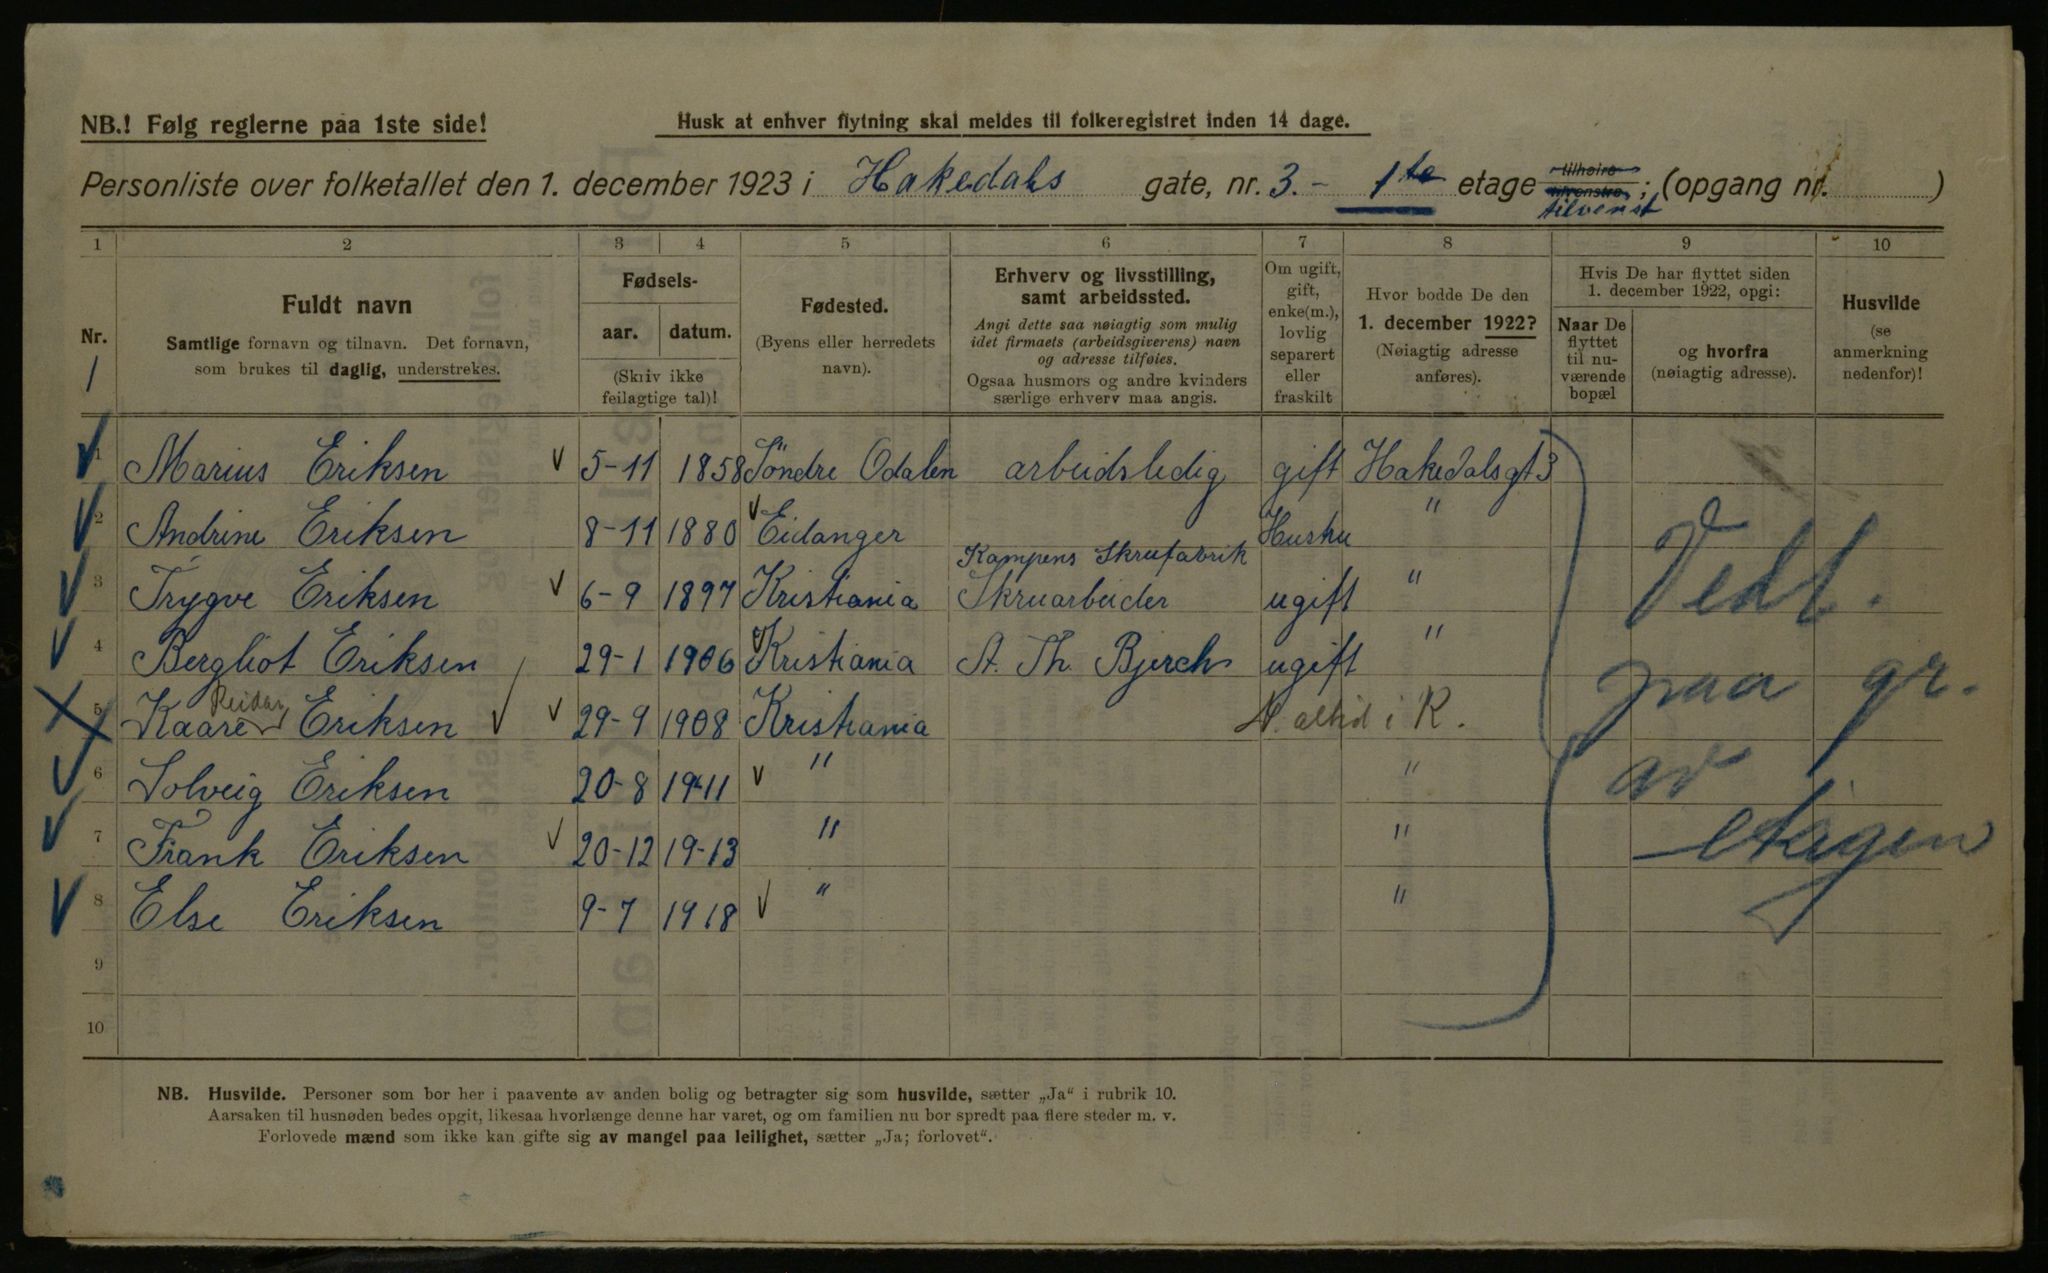 NB.! Følg reglerne paa 1ste side!
Husk at enhver flytning skal meldes til folkeregistret inden 14 dage.
Personliste over folketallet den 1. december 1923 i Hakedals gate, nr. 3. - 1te etage tilhøire tilvenstre; (opgang nr. )
tilvenst
1 2 3 4 5 6 7 8 9 10
Nr.
1
Fuldt navn
Samtlige fornavn og tilnavn. Det fornavn,
som brukes til daglig, understrekes.
Fødsels-
aar. datum.
(Skriv ikke
feilagtige tal)!
Fødested.
(Byens eller herredets
navn).
Erhverv og livsstilling,
samt arbeidssted.
Angi dette saa nøiagtig som mulig
idet firmaets (arbeidsgiverens) navn
og adresse tilføies.
Ogsaa husmors og andre kvinders
særlige erhverv maa angis.
Om ugift,
gift,
enke(m.),
lovlig
separert
eller
fraskilt
Hvor bodde De den
1. december 1922?
(Nøiagtig adresse
anføres).
Hvis De har flyttet siden
1. december 1922, opgi:
Naar De
flyttet
til nu-
værende
bopæl
og hvorfra
(nøiagtig adresse).
Husvilde
(se
anmerkning
nedenfor)!
1 Marius Eriksen 5-11 1858 Söndre Odalen arbeidsledig gift Hakedalsgt 3
2 Andrine Eriksen 8-11 1880 Eidanger Hustru "
Kampens Skrufabrik
3 Trygve Eriksen 6-9 1897 Kristiania Skruarbeider ugift "
4 Bergliot Eriksen 29-1 1906 Kristiania A. Th. Bjerch ugift "
Reidar
5 Kaare Eriksen 29-9 1908 Kristiania altid i K.
6 Solveig Eriksen 20-8 1911 " "
7 Frank Eriksen 20-12 19-13 " "
8 Else Eriksen 9-7 1918 " "
9
10
Vedl.
paa gr.
av
etagen
NB. Husvilde. Personer som bor her i paavente av anden bolig og betragter sig som husvilde, sætter „Ja“ i rubrik 10.
Aarsaken til husnøden bedes opgit, likesaa hvorlænge denne har varet, og om familien nu bor spredt paa flere steder m. v.
Forlovede mænd som ikke kan gifte sig av mangel paa leilighet, sætter „Ja; forlovet“.